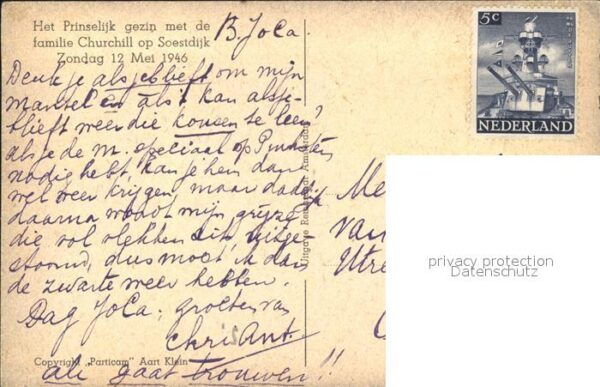 Het Prinselijk gezin met de
familie Churchill op Soestdijk
Zondag 12 Mei 1946
B. JoCa.
5c
NEDERLAND
Denk je alsjeblieft om mijn
mantel en als 't kan alsje-
blieft weer die kousen te leen?
als je de m. speciaal op Pinksten
nodig hebt, kan je hem dan
wel weer krijgen maar dadelijk
daarna wordt mijn grijze
die vol vlekken zit, uitge-
stoomd, dus moet ik dan
de zwarte weer hebben.
Dag JoCa, groeten van
Chris Ant.
die gaat trouwen!!
Copyright „Particam" Aart Klein
Uitgave
Amsterdam
Me
van
Utre
privacy protection
Datenschutz